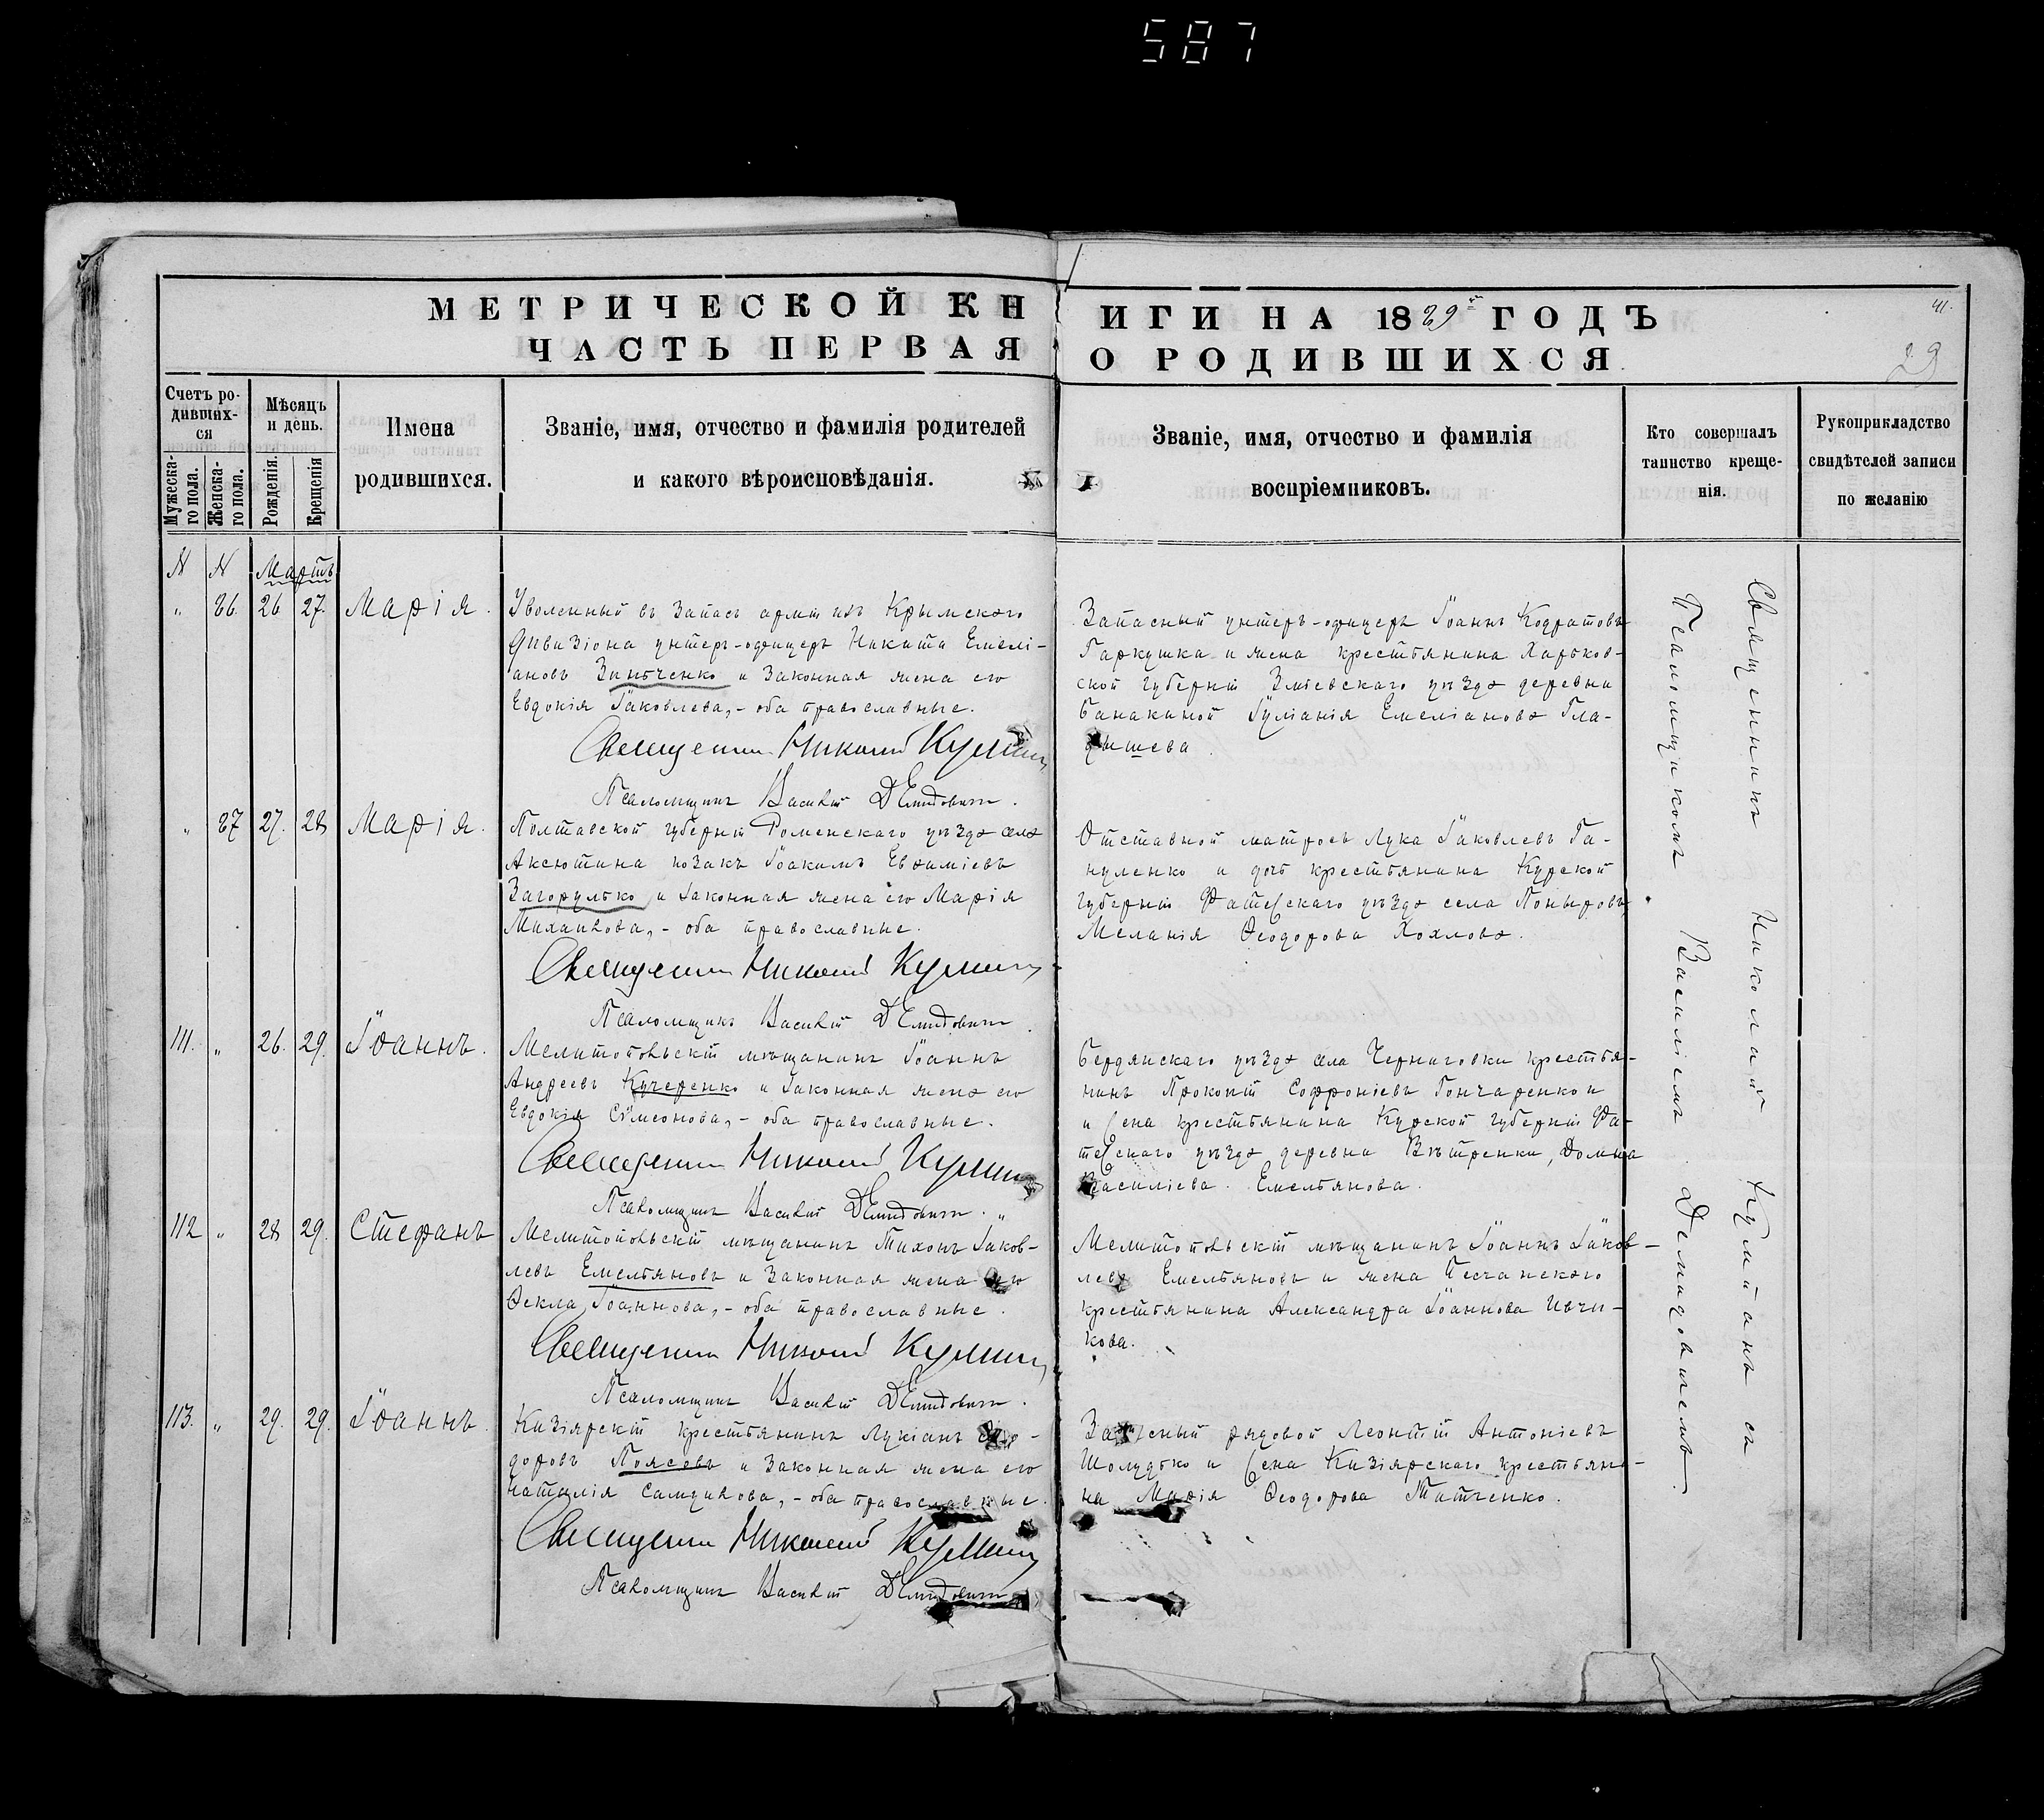 587
МЕТРИЧЕСКОЙ КНИГИ НА 1889й ГОДЪ
41.
ЧАСТЬ ПЕРВАЯ О РОДИВШИХСЯ.
29
Счетъ родившихся
Мужескаго пола.
Женскаго пола.
Мѣсяцъ и день.
Рожденія.
Крещенія
Имена родившихся.
Званіе, имя, отчество и фамилія родителей
и какого вѣроисповѣданія.
Званіе, имя, отчество и фамилія
воспріемниковъ.
Кто совершалъ
таинство креще-
нія.
Рукоприкладство
свидѣтелей записи
по желанію
N N Мартъ
" 86. 26 27. Марія.
Уволенный въ запасъ арміи изъ Крымскаго
дивизіона унтеръ-офицеръ Никита Емелі-
ановъ Зинченко и законная жена его
Евдокія Іаковлева, - оба православные.
Священник Николай Кулман
Псаломщикъ Василій Демидович.
Запасный унтеръ-офицеръ Іоаннъ Кодратовъ
Гаркушка и жена крестьянина Харьков-
ской губерніи Зміевскаго уѣзда деревни
Банакиной Іуліанія Емеліанова Гла-
дышева.
" 87 27. 28 Марія.
Полтавской губерніи Роменскаго уѣзда села
Аксютина козакъ Іоакимъ Евѳиміевъ
Загорулько и законная жена его Марія
Михаилова, - оба православные.
Священник Николай Кулман
Псаломщикъ Василій Демидович.
Отставной матросъ Лука Іаковлевъ Га-
нуленко и дочь крестьянина Курской
губерніи Фатежскаго уѣзда села Поныровъ
Меланія Ѳеодорова Хохлова.
111. " 26. 29. Іоаннъ.
Мелитопольскій мѣщанинъ Іоаннъ
Андреевъ Кучеренко и законная жена его
Евдокія Сѵмеонова, - оба православные.
Священник Николай Кулман
Псаломщикъ Василій Демидович.
Бердянскаго уѣзда села Черниговки крестья-
нинъ Прокопій Софроніевъ Гончаренко и
жена крестьянина Курской губерніи Фа-
тежскаго уѣзда деревни Вѣтренки, Домна
Василіева Емельянова.
112 " 28 29. Стефанъ
Мелитопольскій мѣщанинъ Тихонъ Іаков-
левъ Емельяновъ и законная жена его
Ѳекла Іоаннова, - оба православные.
Священник Николай Кулман
Псаломщикъ Василій Демидович.
Мелитопольскій мѣщанинъ Іоаннъ Іаков-
левъ Емельяновъ и жена Песчанскаго
крестьянина Александра Іоаннова Ивчи-
кова.
113. " 29. 29. Іоаннъ.
Кизіярскій крестьянинъ Лукіанъ Ѳео-
доровъ Поясовъ и законная жена его
Наталія Самуилова, - оба православные.
Священник Николай Кулман
Псаломщикъ Василій Демидович
Запасный рядовой Леонтій Антоніевъ
Шолудько и жена Кизіярскаго крестьяни-
на Марія Ѳеодорова Титченко.
Священникъ Николай Кулманъ съ
Псаломщикомъ Василіемъ Демидовичемъ.